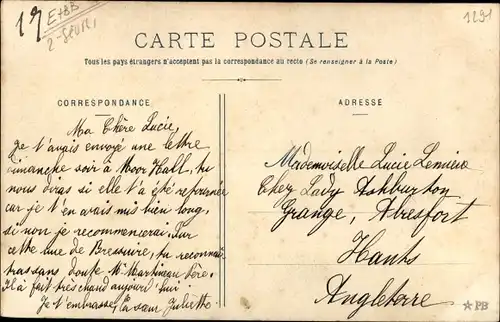 17
E+BB
2-SÈVR.
1291
CARTE POSTALE
Tous les pays étrangers n'acceptent pas la correspondance au recto (Se renseigner à la Poste)
CORRESPONDANCE
ADRESSE
Ma Chère Lucie,
Je t'avais envoyé une lettre
dimanche soir à Moor Hall, tu
nous diras si elle t'a été retournée
car je t'en avais mis bien long,
si non je recommencerai. Sur
cette vue de Bressuire, tu reconnai
tras sans doute Mr Martineau père.
Il a fait très chaud aujourd'hui.
Je t'embrasse, ta sœur Juliette
Mademoiselle Lucie Lemiere
Chez Lady Ashburton
Grange, Alresfort
Hants
Angleterre
PB